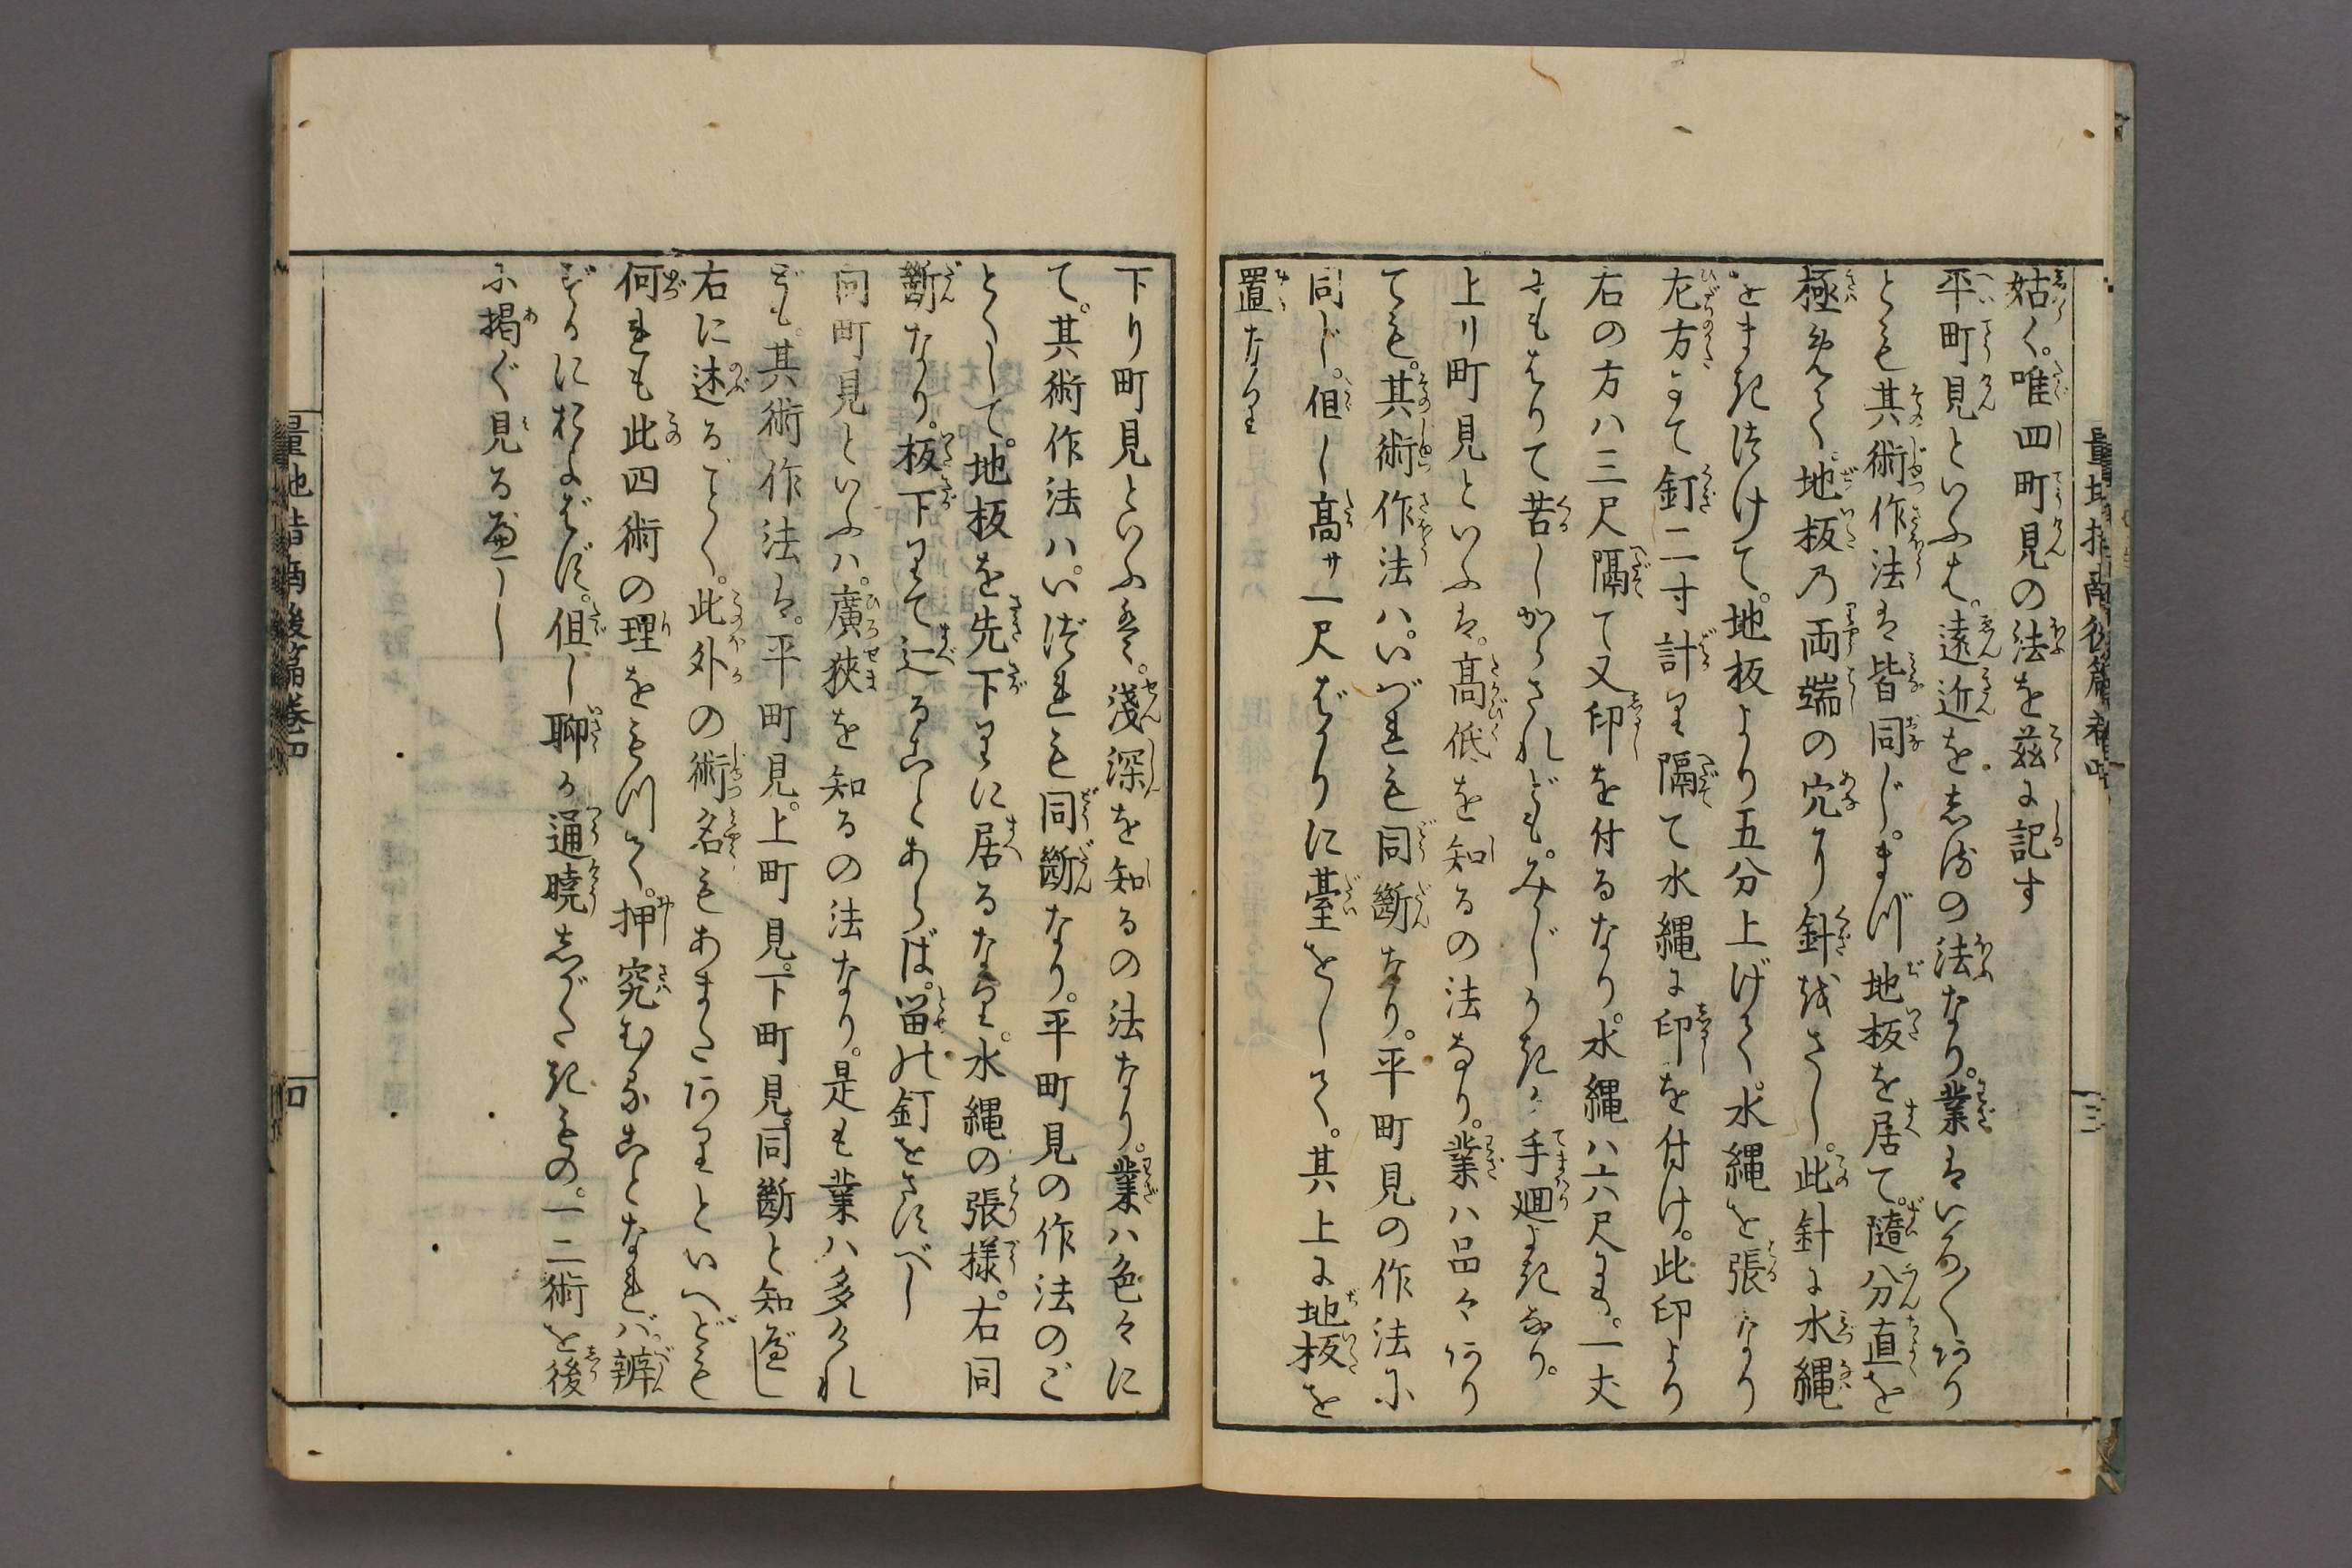 姑く。唯四町見の法を茲に記す
平町見といふは。遠近をしるの法なり。業はいろ〳〵あり
とも其術作法は皆同じ。まづ地板を居て。随分直を
極めて。地板の両端の穴より針をさし。此針に水縄
をまきつけて。地板より五分上げて。水縄を張なり
左方にて釘二寸計り隔て水縄に印を付け。此印より
右の方ハ三尺隔て又印を付るなり。水縄ハ六尺にも。一丈
にもはりて苦しからされども。みじかきハ手廻よきなり。
上リ町見といふは。高低を知るの法なり。業ハ品々あり
ても。其術作法ハ。いづれも同断なり。平町見の作法に
同じ。但し高サ一尺ばかりに臺をして。其上に地板を
置なり
下り町見といふは。淺深を知るの法なり。業ハ色々に
て。其術作法ハ。いづれも同断なり。平町見の作法のご
とくして。地板を先下りに居るなり。水縄の張様。右同
断なり。板下りて辷ることあらば。留の釘をさすべし
向町見といふハ。廣狹を知るの法なり。是も業ハ多けれ
ども。其術作法は。平町見。上町見。下町見。同断と知べし
右に述るごとく。此外の術名もあまたありといへども
何れも此四術の理をもつて。押究むることなれバ。辨
ずるにおよばず。但し聊か通曉しがたきもの。一二術を後
に掲ぐ見るべし
量地指南後篇巻四
三
量地指南後篇巻四
四